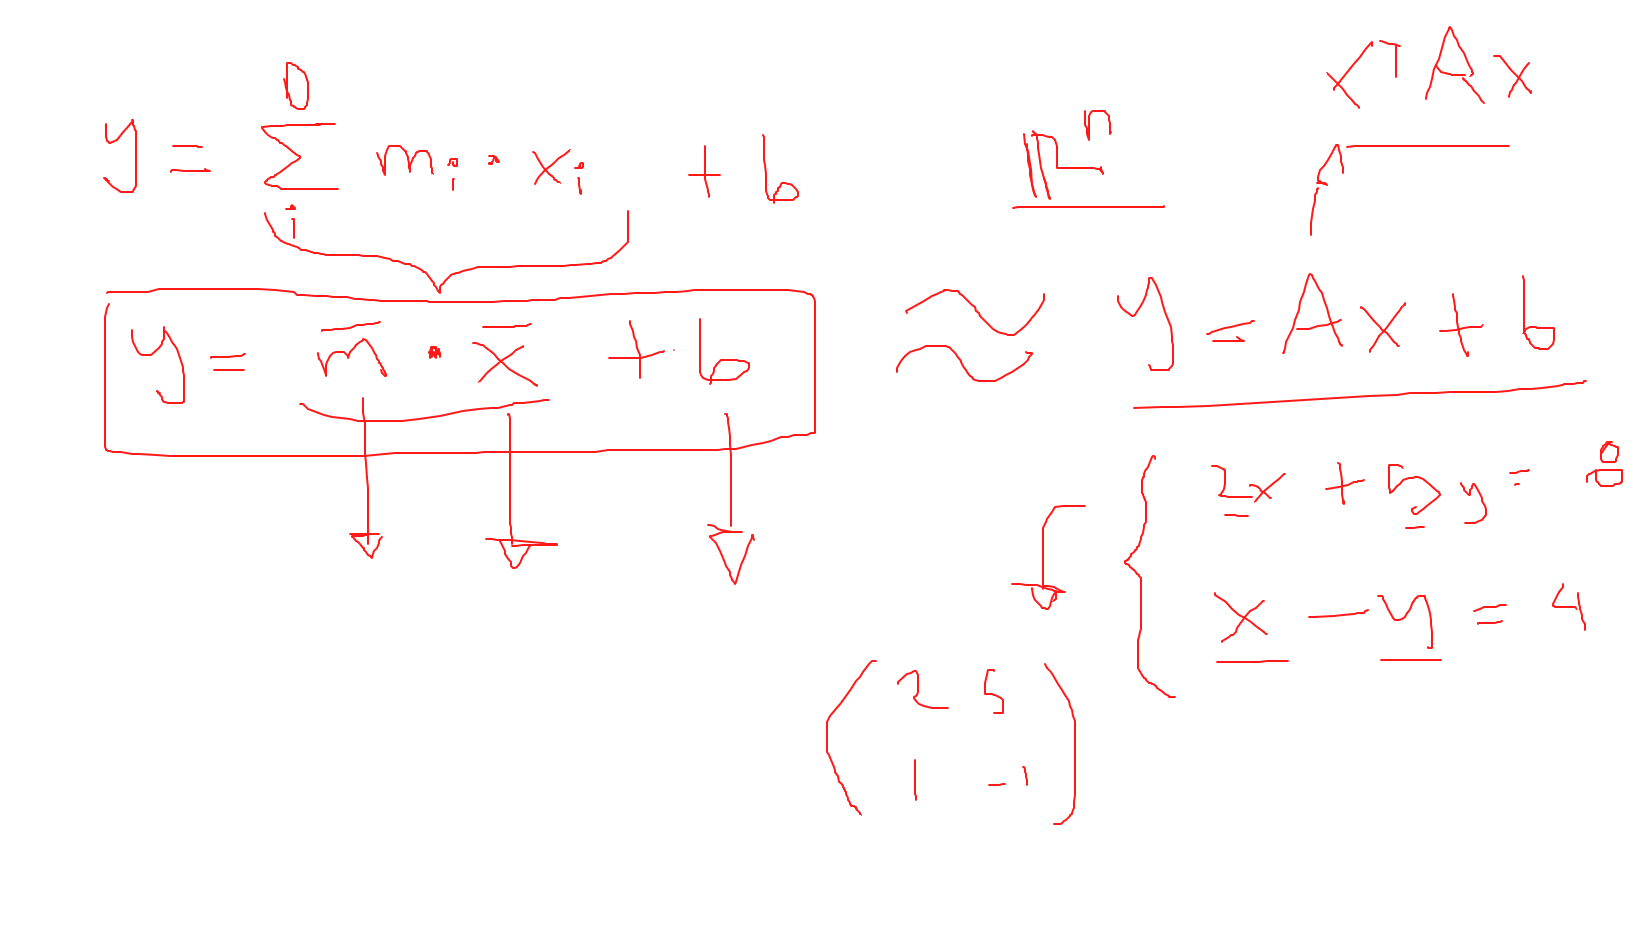 y = D ∑ i mᵢ · xᵢ + b
y = m̅ · x̅ + b
ℝⁿ
xᵀAx
≈ y = Ax + b
2x + 5y = 8
x − y = 4
2 5
1 -1